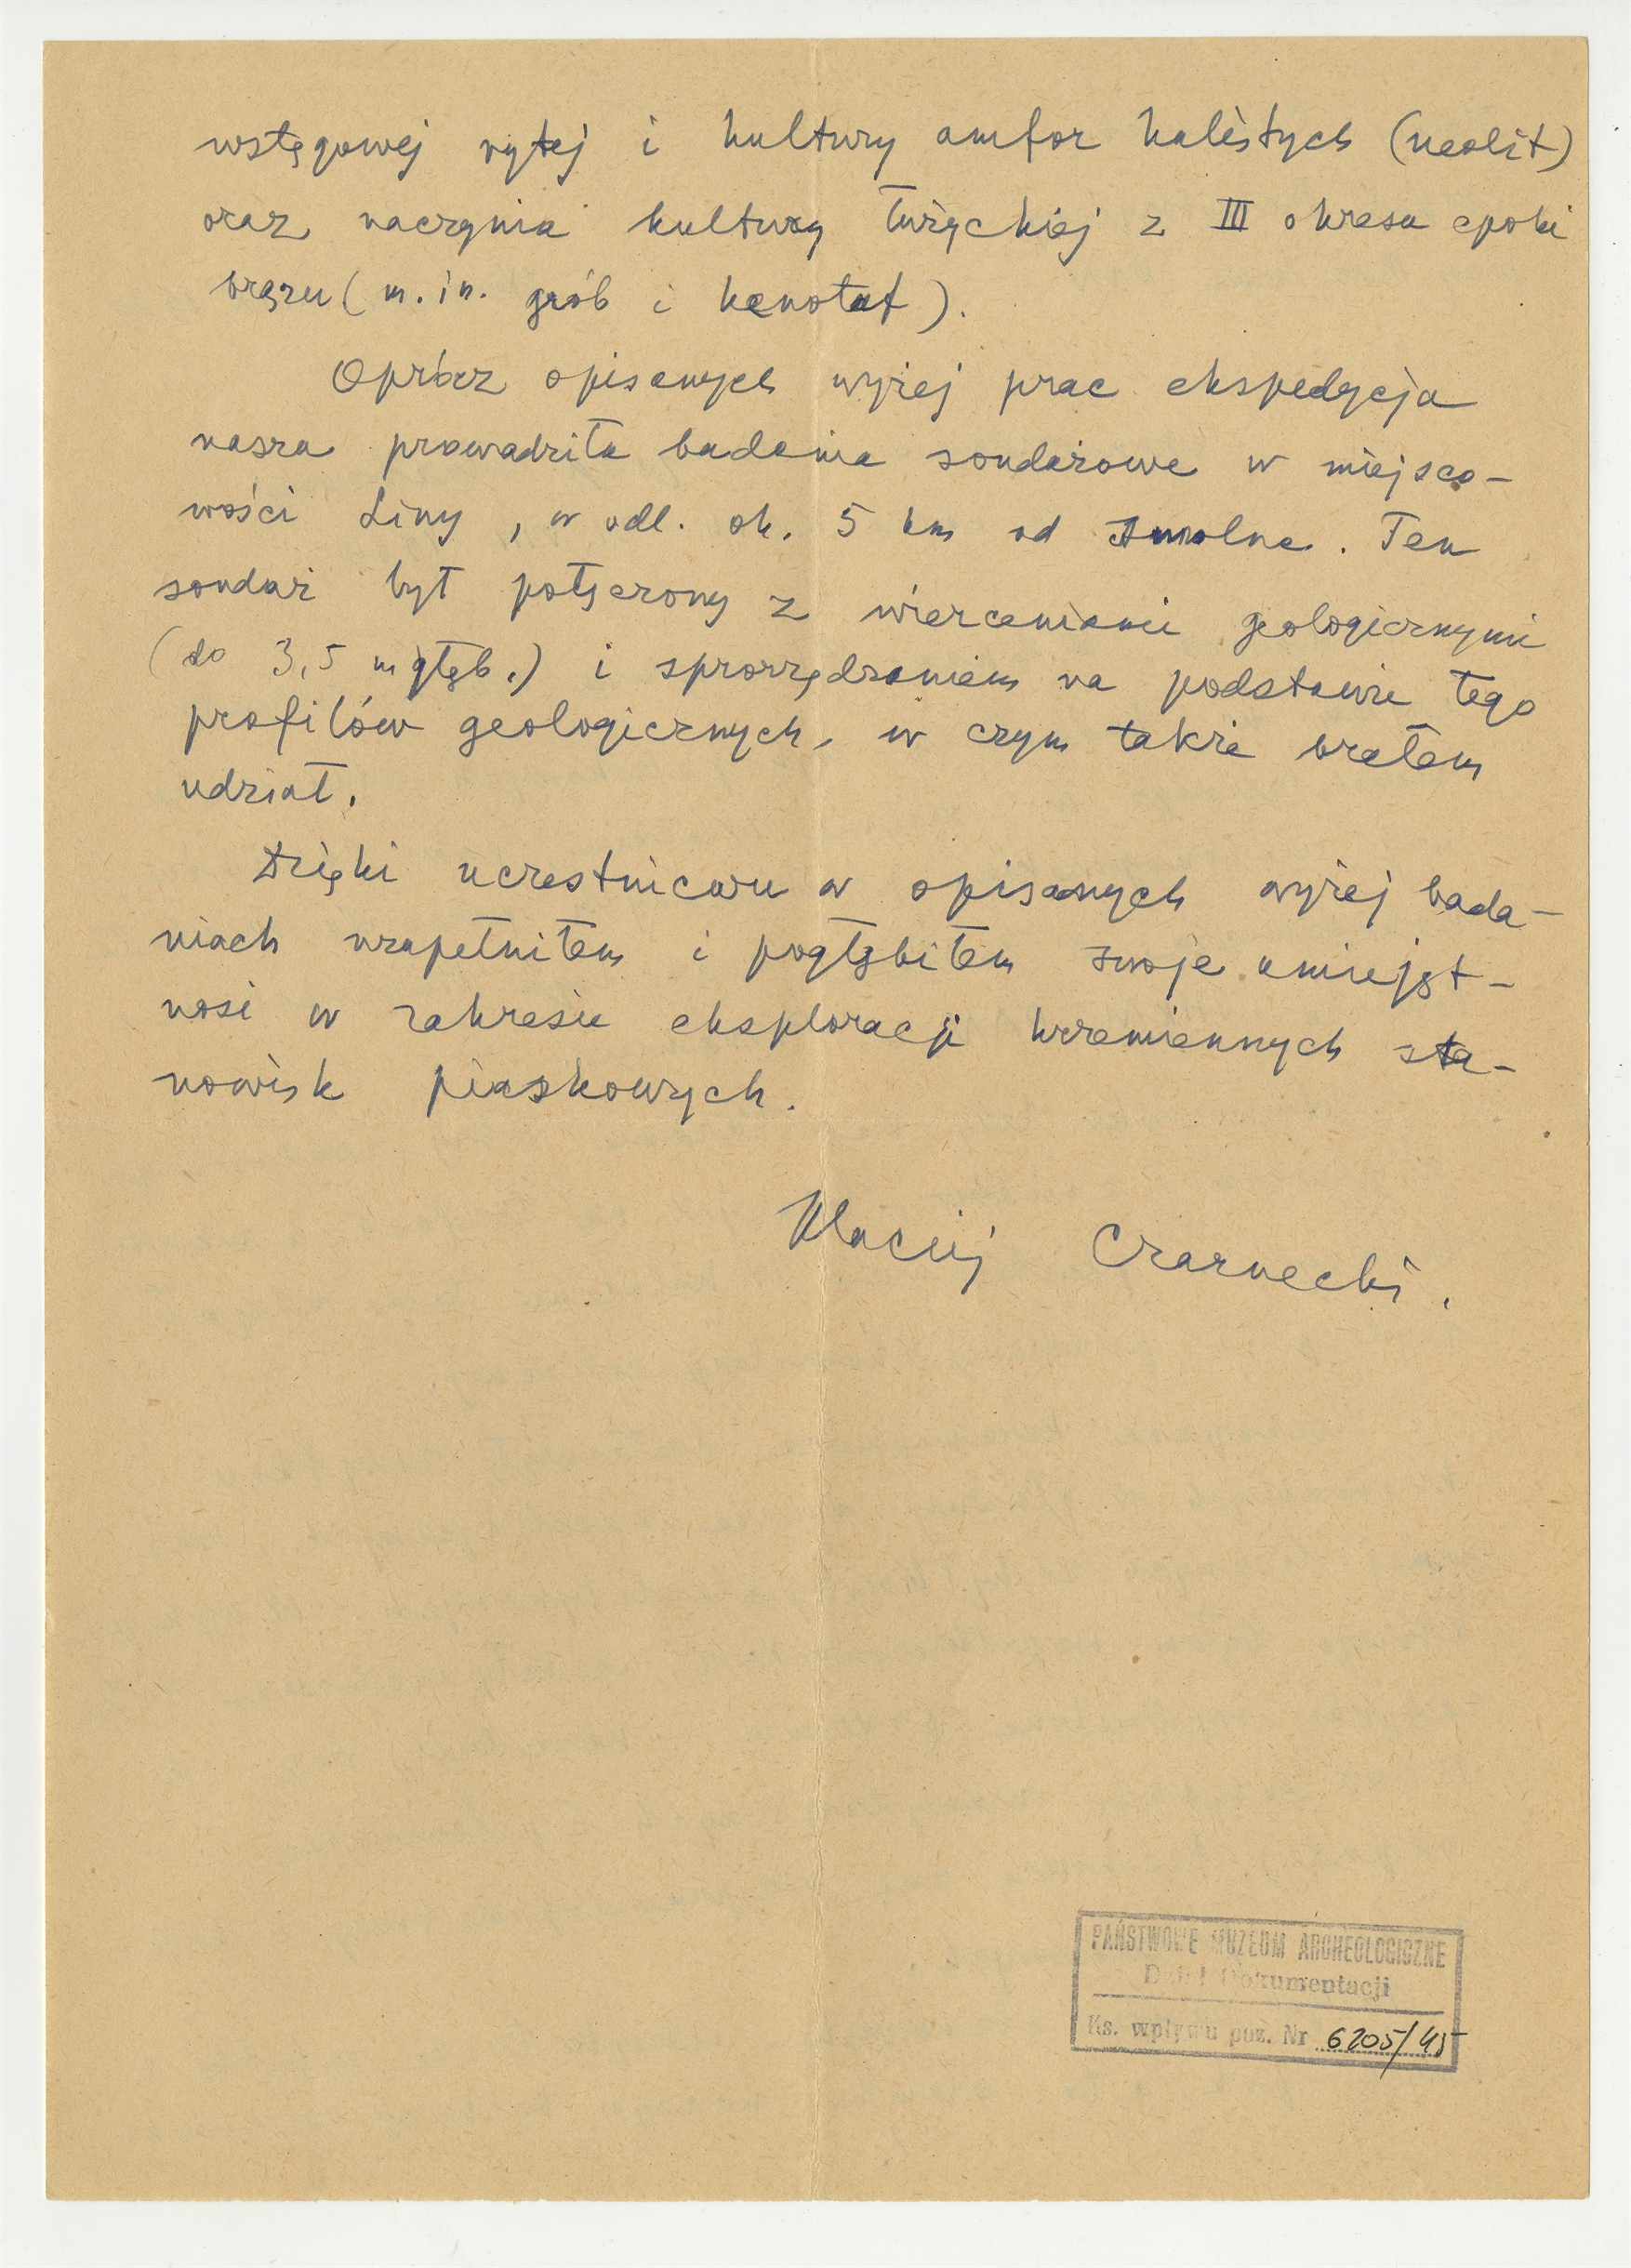 wstęgowej rytej i kultury amfor kulistych (neolit)
oraz naczynia kultury łużyckiej z III okresu epoki
brązu (m.in. grób i kenotaf).
Oprócz opisanych wyżej prac ekspedycja
nasza prowadziła badania sondażowe w miejsco-
wości Liny, w odl. ok. 5 km od . Ten
sondaż był połączony z wierceniami geologicznymi
(do 3,5 m głęb.) i sporządzaniem na podstawie tego
profilów geologicznych, w czym także brałem
udział.
Dzięki uczestnictwu w opisanych wyżej bada-
niach uzupełniłem i pogłębiłem swoje umiejęt-
ności w zakresie eksploracji krzemiennych sta-
nowisk piaskowych.
Maciej Czarnecki.
PAŃSTWOWE MUZEUM ARCHEOLOGICZNE
Dział Dokumentacji
Ks. wpływu poz. Nr 6205/45